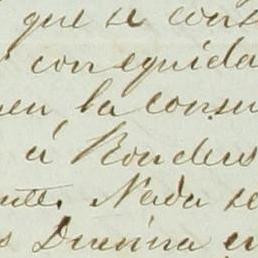 que se cons
conseguida
en la consu
á Rondeus
nte. Nada se
s Dunina en